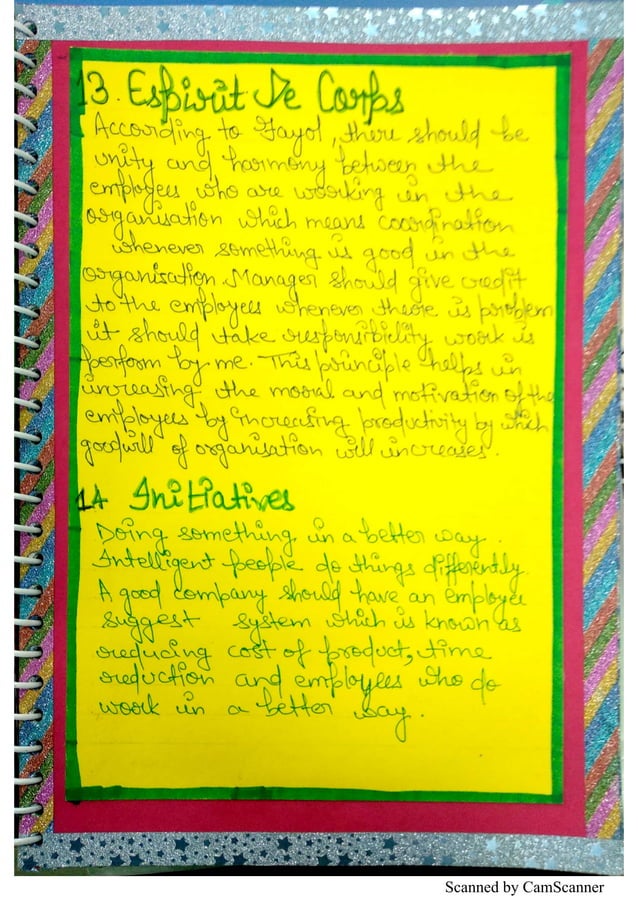 13. Espirit De Corps
According to Fayol, there should be
unity and harmony between the
employees who are working in the
organisation which means coordination
whenever something is good in the
organisation. Manager should give credit
to the employees whenever there is problem
it should take responsibility work is
perform by me. This principle helps in
increasing the moral and motivation of the
employees by increasing productivity by which
goodwill of organisation will increases.
14 Initiatives
Doing something in a better way.
Intelligent people do things differently.
A good company should have an employee
suggest system which is known as
reducing cost of product, time
reduction and employees who do
work in a better way.
Scanned by CamScanner